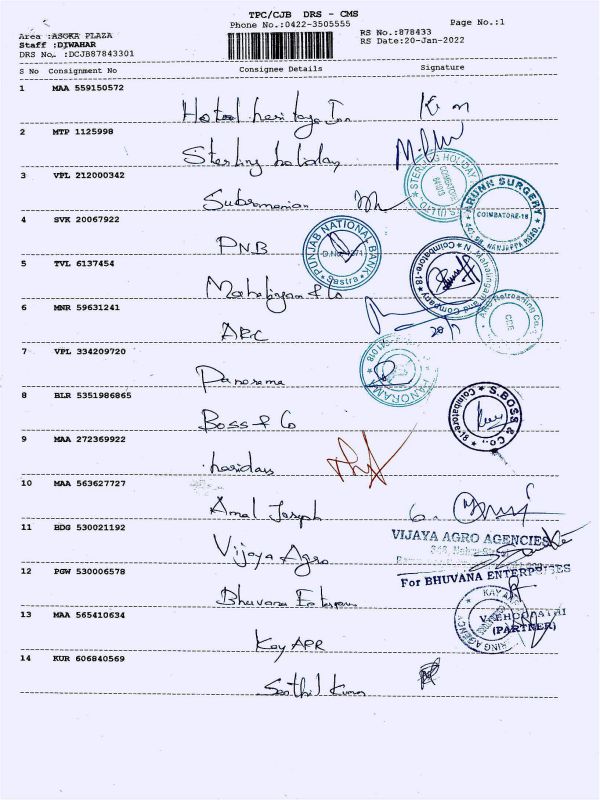 TPC/CJB DRS - CMS
Phone No.:0422-3505555
Page No.:1
Area :ASOKA PLAZA
Staff :DIWAHAR
DRS No. :DCJB87843301
RS No.:878433
RS Date:20-Jan-2022
S No Consignment No Consignee Details Signature
1 MAA 559150572
Hotel heritage Inn
2 MTP 1125998
Sterling holiday
3 VPL 212000342
Subramanian
4 SVK 20067922
PNB
5 TVL 6137454
Mahalingam & Co
6 MNR 59631241
ARC
7 VPL 334209720
Panorama
8 BLR 5351986865
Boss & Co
9 MAA 272369922
haridass
10 MAA 563627727
Amal Joseph
11 BDG 530021192
Vijaya Agro
12 PGW 530006578
Bhuvana
13 MAA 565410634
Kay APR
14 KUR 606840569
Senthil Kumar
STERLING HOLIDAY
COIMBATORE
641018
ARUNN SURGERY
COIMBATORE-18
PUNJAB NATIONAL BANK
Sastra
N. Mahalingam and Company
Coimbatore-18
20/1
ARC Retreading Co.
CBE
PANORAMA
S.BOSS & Co.,
Coimbatore-18
VIJAYA AGRO AGENCIES
For BHUVANA ENTERPRISES
KAY
(PARTNER)